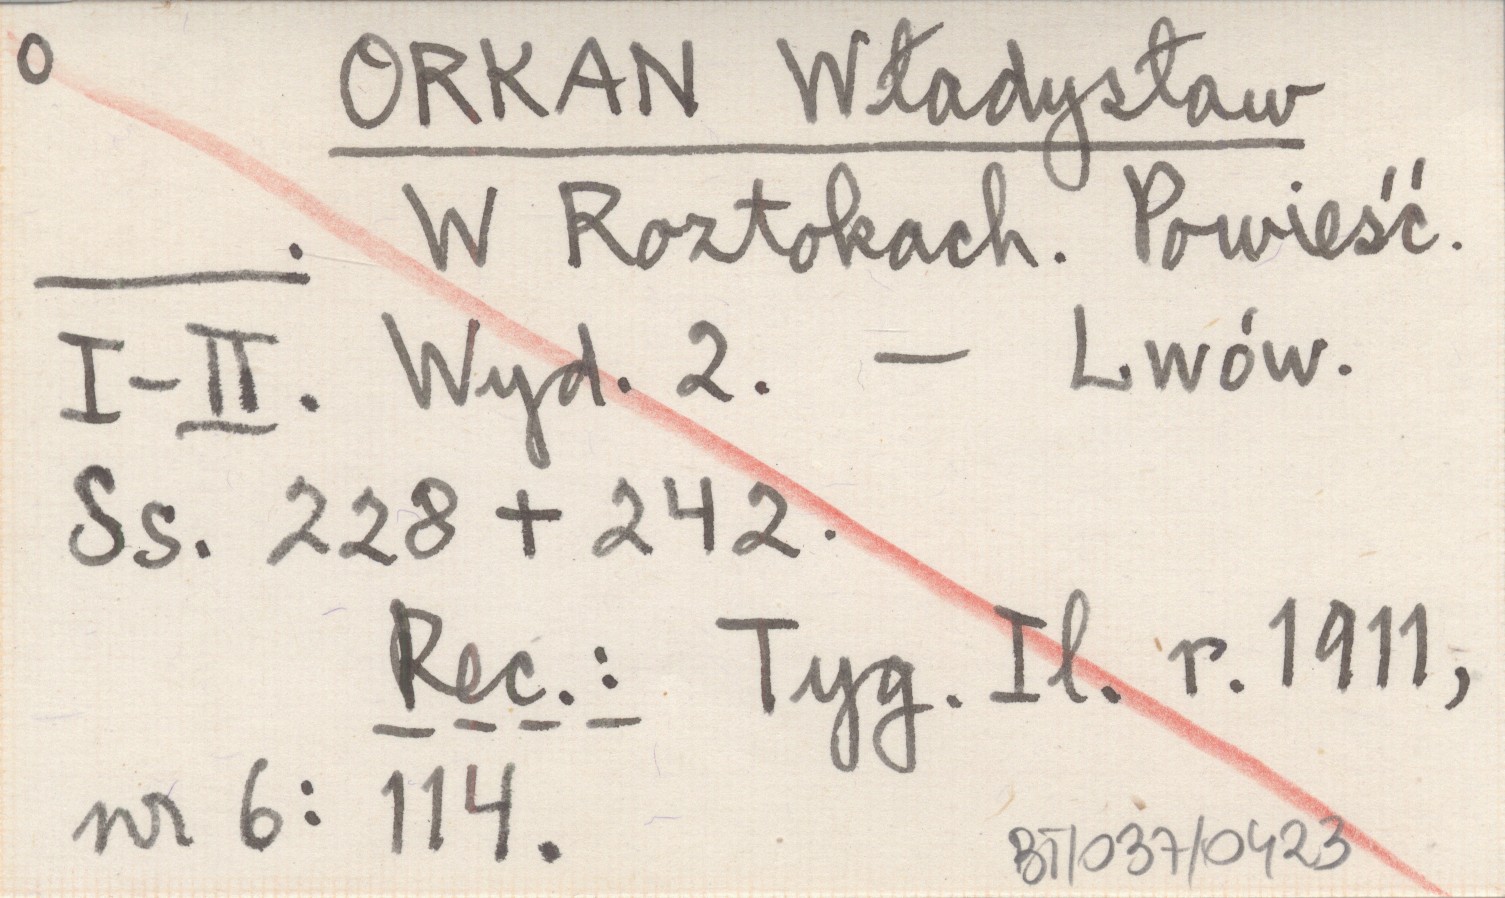 O
ORKAN Władysław
. W Roztokach. Powieść.
I-II. Wyd. 2. — Lwów.
Ss. 228 + 242.
Rec.: Tyg. Il. r. 1911,
nr 6: 114.
BT/037/0423